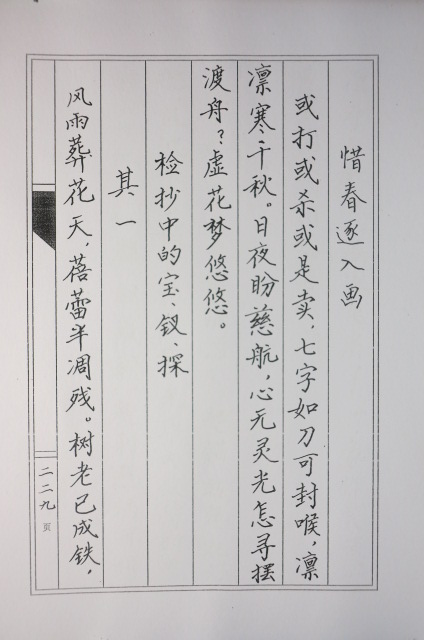 惜春逐入画
或打或杀或是卖，七字如刀可封喉，凛
凛寒千秋。日夜盼慈航，心无灵光怎寻摆
渡舟？虚花梦悠悠。
检抄中的宝、钗、探
其一
风雨葬花天，蓓蕾半凋残。树老已成铁，
二二九页